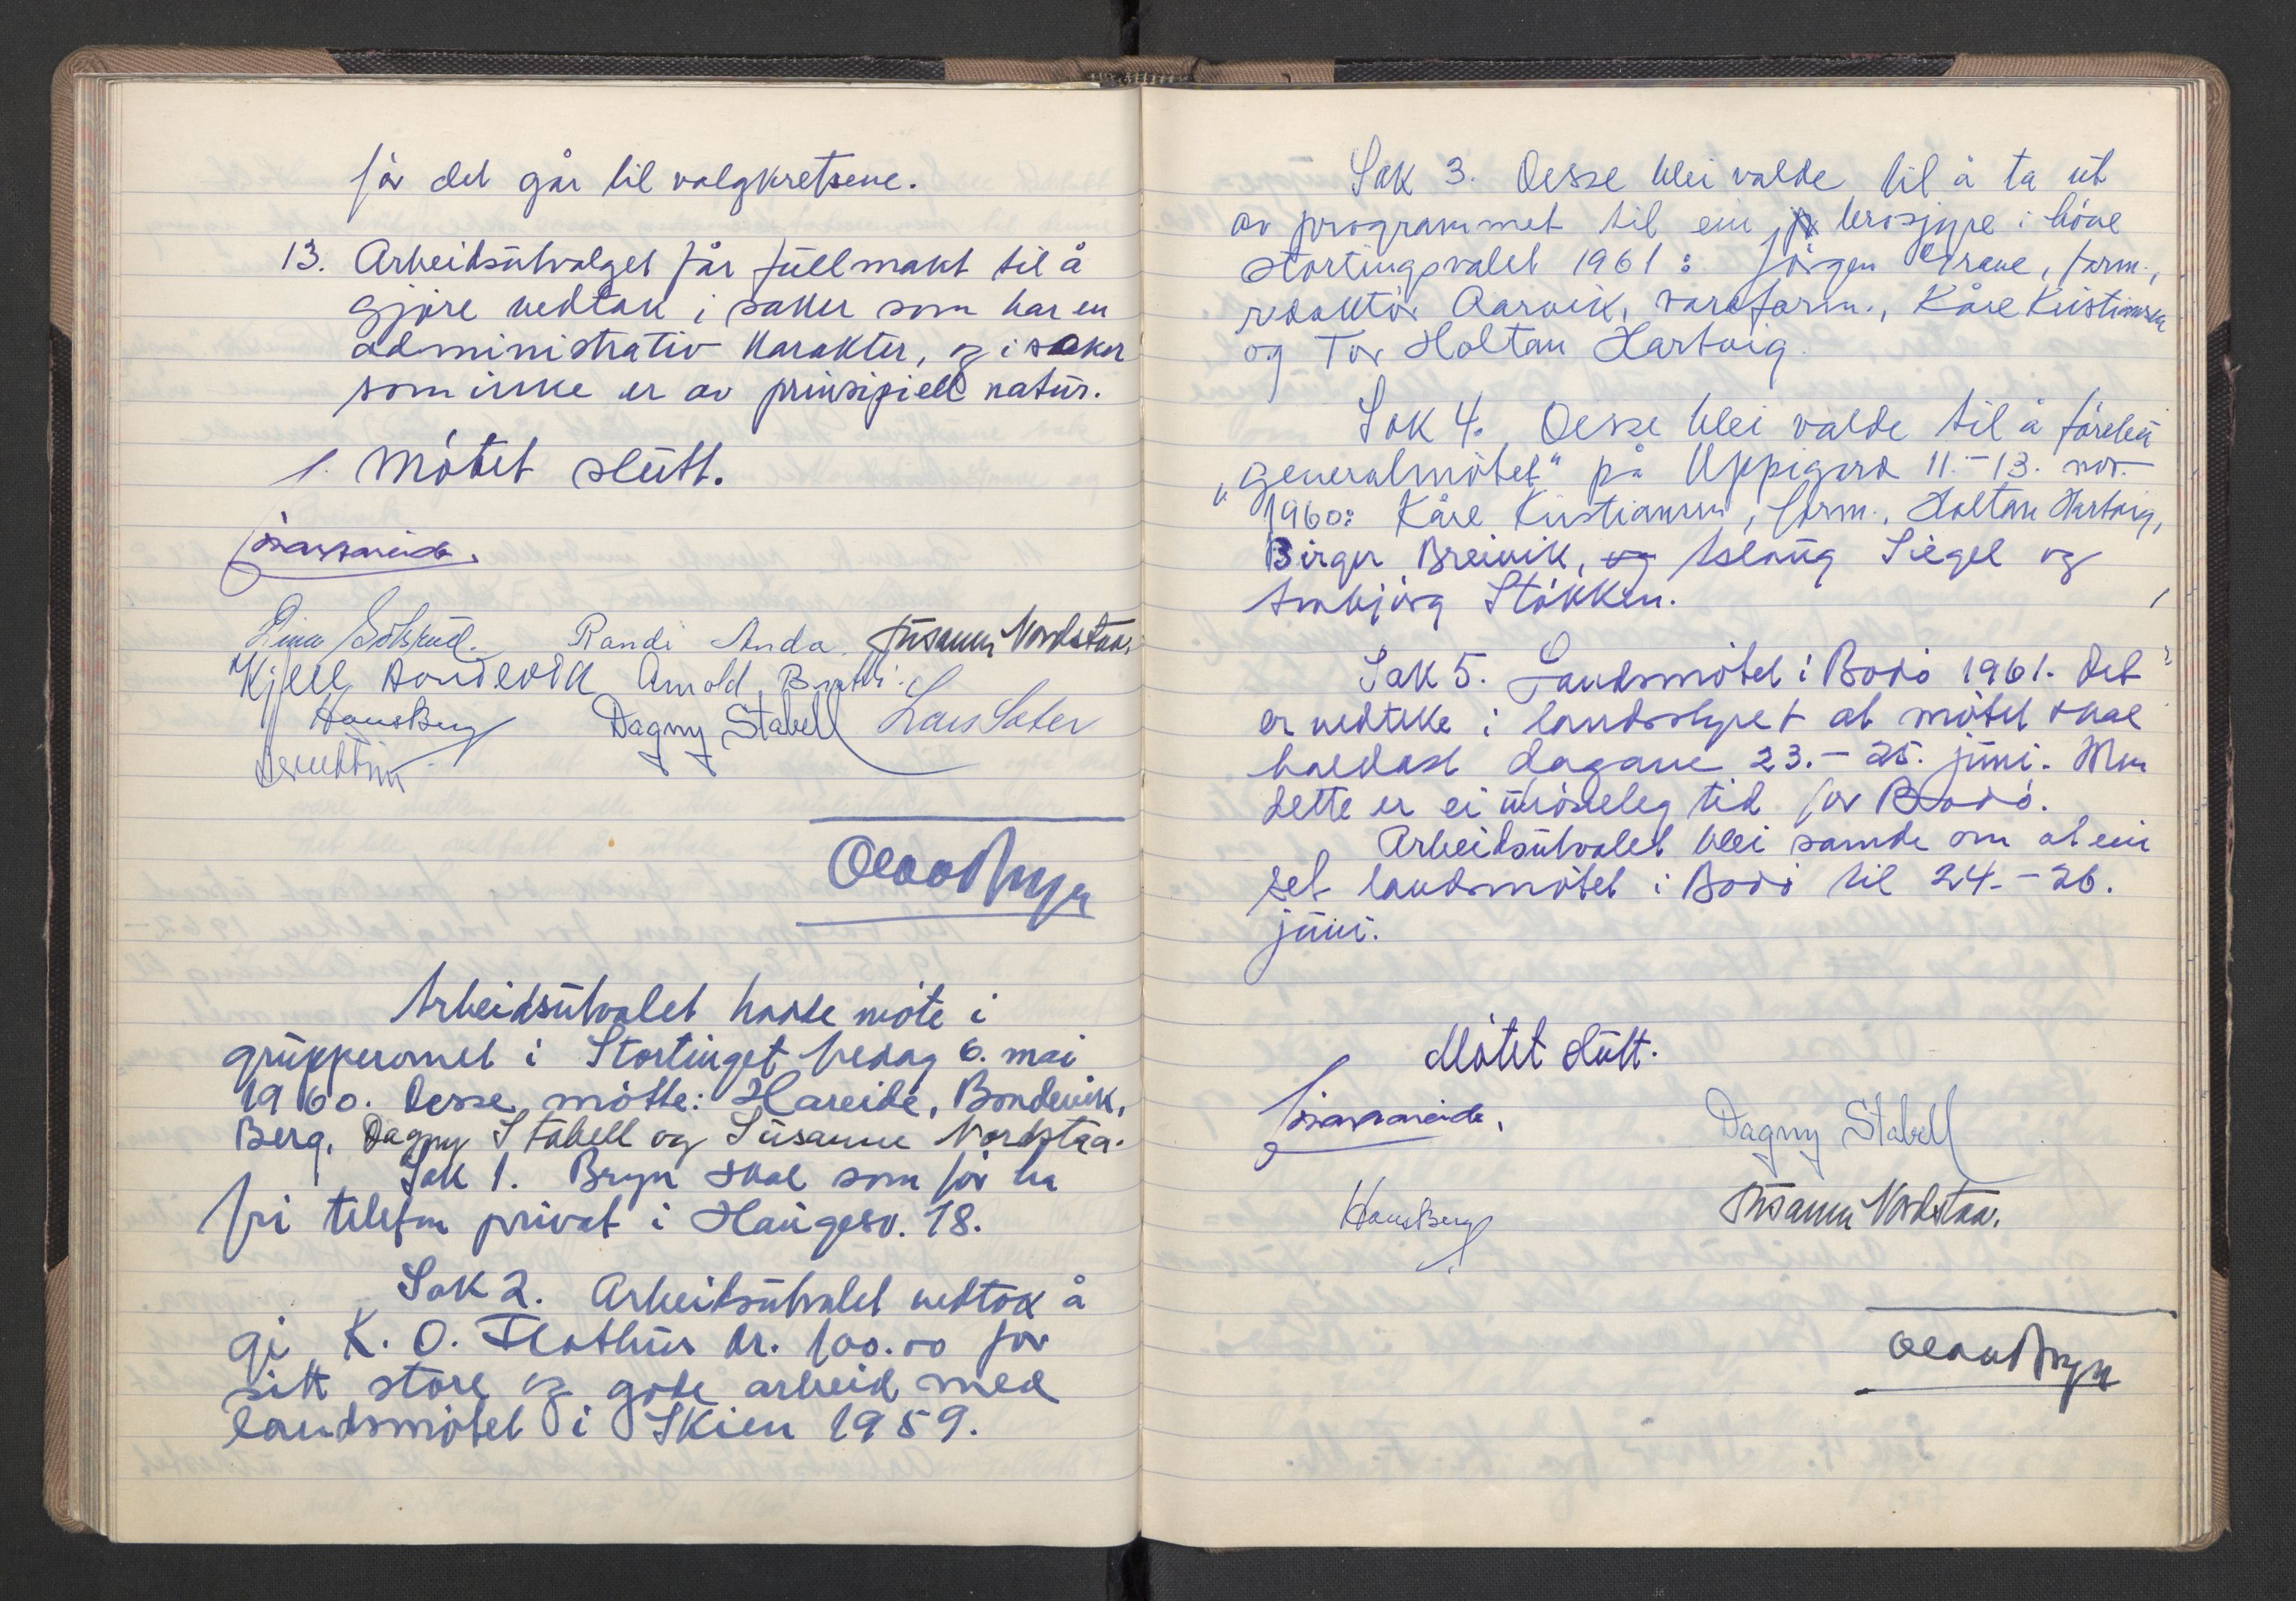 før det går til valgkretsene.
13. Arbeidsutvalget får fullmakt til å
gjøre vedtak i saker som har en
administrativ karakter, og i saker
som ikke er av prinsipiell natur.
Møtet slutt.
Randi Anda. Susanne Nordstaa.
Kjell Bondevik Arnold
Hans Berg Dagny Stabell Lars Sæter
Olav Bryn
Arbeidsutvalet hadde møte i
grupperomet i Stortinget fredag 6. mai
1960. Desse møtte: Hareide, Bondevik,
Berg, Dagny Stabell og Susanne Nordstaa.
Sak 1. Bryn skal som før ha
fri telefon privat i Haugesv. 18.
Sak 2. Arbeidsutvalet vedtok å
gi K. O. Flathus kr. 100.00 for
sitt store og gode arbeid med
landsmøtet i Skien 1959.
Sak 3. Desse blei valde til å ta ut
av programmet til ein brosjyre i høve
stortingsvalet 1961: Jørgen Grave, form.,
redaktør Aarvik, varaform., Kåre Kristiansen
og Tor Holtan Hartvig.
Sak 4. Desse blei valde til å førebu
„generalmøtet" på Uppigard 11.-13. nov.
1960: Kåre Kristiansen, form., Holtan Hartvig,
Birger Breivik, og Aslaug Siegel og
Annbjørg Støkken.
Sak 5. Landsmøtet i Bodø 1961. Det
er vedteke i landsstyret at møtet skal
haldast dagane 23.-25. juni. Men
dette er ei umöjeleg tid for Bodø.
Arbeidsutvalet blei samde om at ein
set landsmøtet i Bodø til 24.-26.
juni.
Møtet slutt.
Dagny Stabell
Hans Berg Susanne Nordstaa.
Olav Bryn